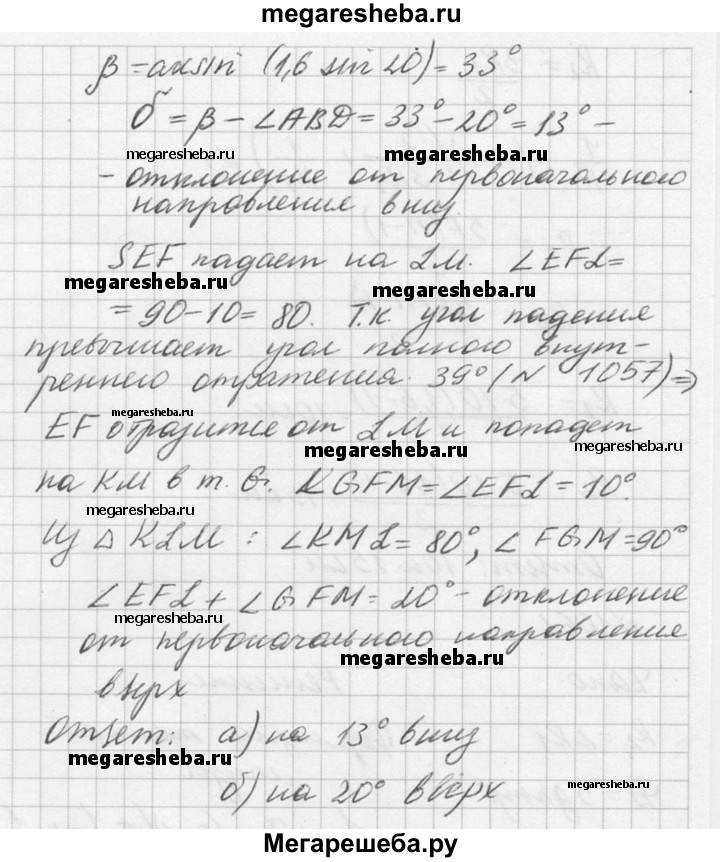 megaresheba.ru
β = arcsin (1,6 sin 20) = 33°
δ = β - ∠ABD = 33° - 20° = 13° -
megaresheba.ru megaresheba.ru
- отклонение от первоначального
направления вниз
SEF падает на LM. ∠EFL =
megaresheba.ru megaresheba.ru
= 90 - 10 = 80. Т.к. угол падения
превышает угол полного внут-
реннего отражения 39° (N 1057) ⇒
megaresheba.ru
EF отразится от LM и попадет
megaresheba.ru
на KM в т. G. ∠GFM = ∠EFL = 10°.
megaresheba.ru
Из △ KLM : ∠KML = 80°, ∠FGM = 90°
∠EFL + ∠GFM = 20° - отклонение
megaresheba.ru
от первоначального направления
megaresheba.ru
вверх
Ответ: а) на 13° вниз
megaresheba.ru
б) на 20° вверх
megaresheba.ru
Мегарешеба.ру